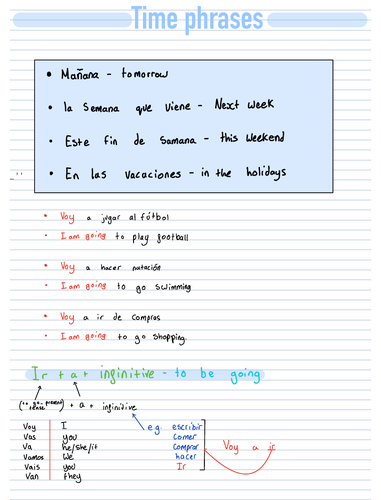 Time phrases
• Mañana - tomorrow
• la Semana que viene - Next week
• Este fin de Samana - this weekend
• En las vacaciones - in the holidays
• Voy a jugar al fútbol
• I am going to play football
• Voy a hacer natación
• I am going to go swimming
• Voy a ir de compras
• I am going to go shopping.
Ir + a + infinitive - to be going
(to go - present tense) + a + infinitive
Voy I
Vas you
Va he/she/it
Vamos We
Vais you
Van they
e.g. escribir
Comer
Comprar
hacer
Ir
Voy a ir